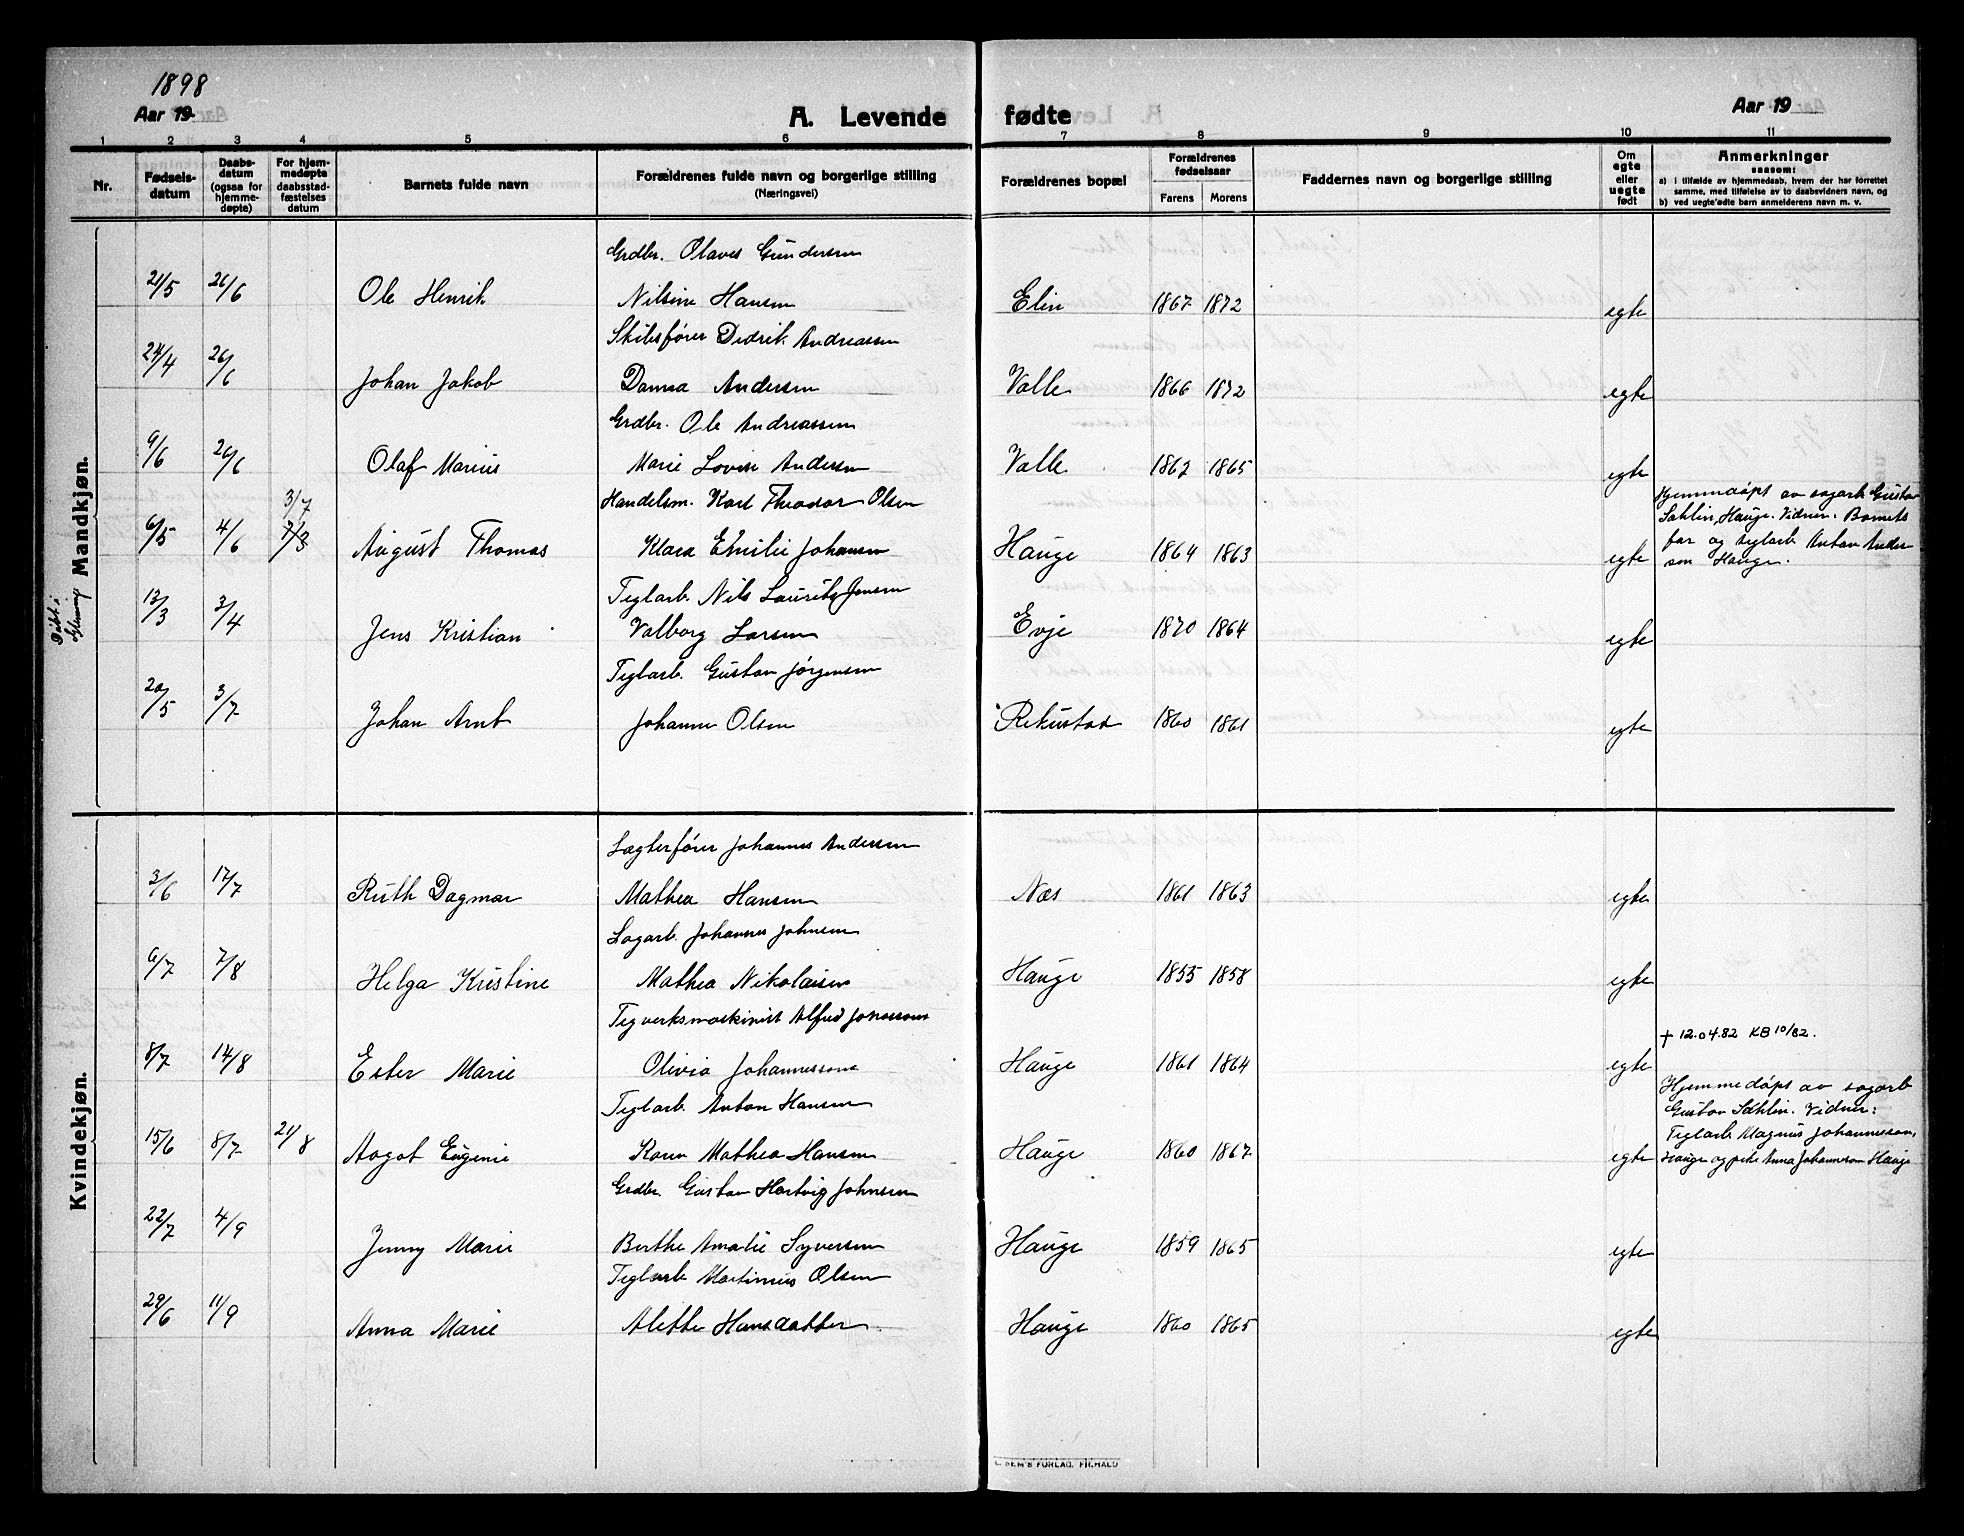 1898
Aar 19
A. Levende fødte
Aar 19
1 2 3 4 5 6 7 8 9 10 11
Nr.
Fødsels-datum
Daabs-datum (ogsaa for hjemme-døpte)
For hjem-medøpte daabsstad-fæstelses datum
Barnets fulde navn
Forældrenes fulde navn og borgerlige stilling (Næringsvei)
Forældrenes bopæl
Forældrenes fødselsaar
Farens Morens
Faddernes navn og borgerlige stilling
Om egte eller uegte født
Anmerkninger
saasom:
a) i tilfælde av hjemmedaab, hvem der har forrettet
samme, med tilføielse av to daabsvidners navn, og
b) ved uegte fødte barn anmelderens navn m. v.
Mandkjøn.
Grdbr. Olaves Gundersen
21/5 26/6 Ole Henrik Nilsine Hansen Elin 1867 1872 egte
Skibsfører Didrik Andreassen
24/4 26/6 Johan Jakob Danna Andersen Valle 1866 1872 egte
Grdbr. Ole Andreassen
9/6 26/6 Olaf Marius Marie Lovise Andersen Valle 1862 1865 egte
3/7 Handelsm. Karl Theodor Olsen
6/5 4/6 7/3 August Thomas Klara Emilie Johansen Hauge 1864 1863 egte
Hjemmedøpt av sagarb. Gustav
Sahlin, Hauge. Vidner: Barnets
far og teglarb. Anton Ander-
sen Hauge.
Døbt i
Teglarb. Nils Lauritz Jensen
13/3 3/4 Jens Kristian Valborg Larsen Evje 1870 1864 egte
Teglarb. Gustav Jørgensen
20/5 3/7 Johan Arnt Johanne Olsen Rekustad 1860 1861 egte
Kvindekjøn.
Lægterfører Johannes Andersen
3/6 17/7 Ruth Dagmar Mathea Hansen Næs 1861 1863 egte
Sagarb. Johannes Johnsen
6/7 7/8 Helga Kristine Mathea Nikolaisen Hauge 1855 1858 egte
Teglverksmaskinist Alfred Jonassons
8/7 14/8 Ester Marie Olivia Johannessons Hauge 1861 1864 egte
+ 12.04.82 KB 10/82.
Teglarb. Anton Hansen
15/6 8/7 21/8 Aagot Eugenie Karen Mathea Hansen Hauge 1860 1867 egte
Hjemmedøpt av sagarb
Gustav Sahlin. Vidner:
Teglarb. Magnus Johannesson,
Hauge og pike Anna Johanneson Hauge
Grdbr. Gustav Hartvig Johnsen
22/7 4/9 Jenny Marie Berthe Amalie Syversen Hauge 1859 1865 egte
Teglarb. Martinius Olsen
29/6 11/9 Anna Marie Alette Hansdatter Hauge 1860 1865 egte
SEM'S FORLAG. FR.HALD